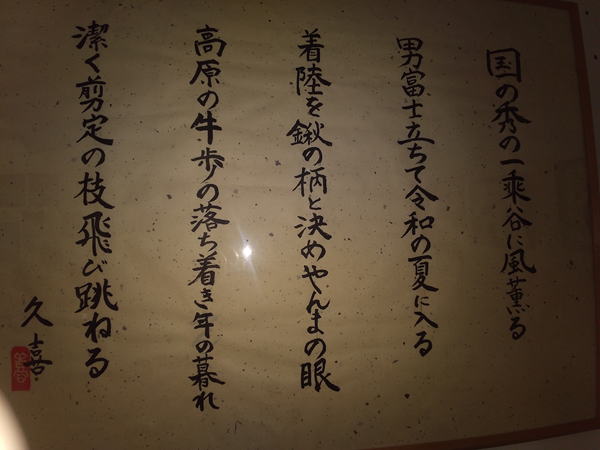 国の秀の一乗谷に風薫る
男富士立ちて令和の夏に入る
着陸を鍬の柄と決めやんまの眼
高原の牛歩の落ち着き年の暮れ
潔く剪定の枝飛び跳ねる
久喜